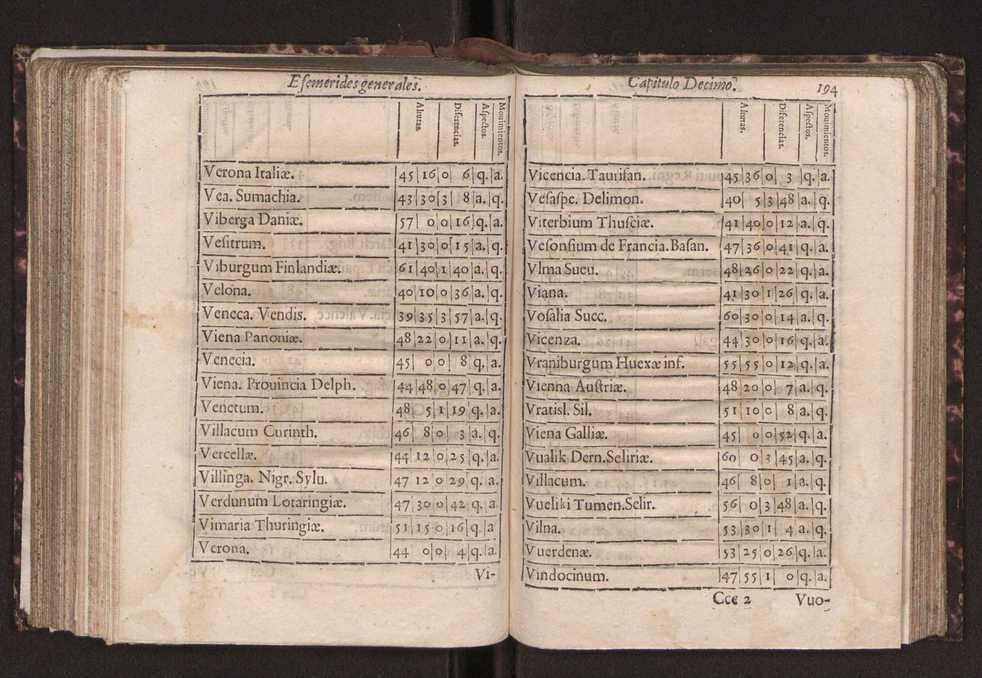 Efemerides generales.
Alturas. Diferencias. Aspectos. Mouimientos.
Verona Italiæ. 45 16 0 6 q. a.
Vea. Sumachia. 43 30 3 8 a. q.
Viberga Daniæ. 57 0 0 16 q. a.
Vesitrum. 41 30 0 15 a. q.
Viburgum Finlandiæ. 61 40 1 40 a. q.
Velona. 40 10 0 36 a. q.
Veneca. Vendis. 39 35 3 57 a. q.
Viena Panoniæ. 48 22 0 11 a. q.
Venecia. 45 0 0 8 q. a.
Viena. Prouincia Delph. 44 48 0 47 q. a.
Venetum. 48 5 1 19 q. a.
Villacum Curinth. 46 8 0 3 a. q.
Vercellæ. 44 12 0 25 q. a.
Villinga. Nigr. Sylu. 47 12 0 29 q. a.
Verdunum Lotaringiæ. 47 30 0 42 q. a.
Vimaria Thuringiæ. 51 15 0 16 q. a
Verona. 44 0 0 4 q. a.
Vi-
Capitulo Decimo. 194
Alturas. Diferencias. Aspectos. Mouimientos.
Vicencia. Taurisan. 45 36 0 3 q. a.
Vesaspe. Delimon. 40 5 3 48 a. q.
Viterbium Thusciæ. 41 40 0 12 a. q.
Vesonsium de Francia. Basan. 47 36 0 41 q. a.
Vlma Sueu. 48 26 0 22 q. a.
Viana. 41 30 1 26 q. a.
Vosalia Suec. 60 30 0 14 a. q.
Vicenza. 44 30 0 16 q. a.
Vraniburgum Huexæ inf. 55 55 0 12 q. a.
Vienna Austriæ. 48 20 0 7 a. q.
Vratisl. Sil. 51 10 0 8 a. q.
Viena Galliæ. 45 0 0 52 q. a.
Vualik Dern. Seliriæ. 60 0 3 45 a. q.
Villacum. 46 8 0 1 a. q.
Vueliki Tumen. Selir. 56 0 3 48 a. q.
Vilna. 53 30 1 4 a. q.
Vuerdenæ. 53 25 0 26 q. a.
Vindocinum. 47 55 1 0 q. a.
Ccc 2 Vuo-